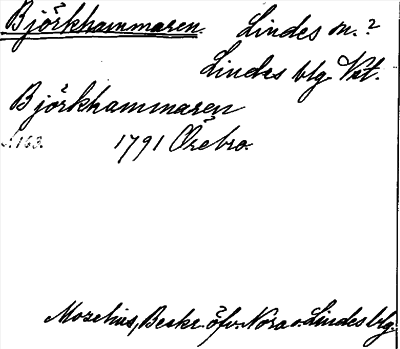 Björkhammaren. Lindes sn.?
Lindes blg Vst.
Björkhammaren
s. 163. 1791 Örebro.
Moselius, Beskr. öfv. Nora o. Lindes blg.